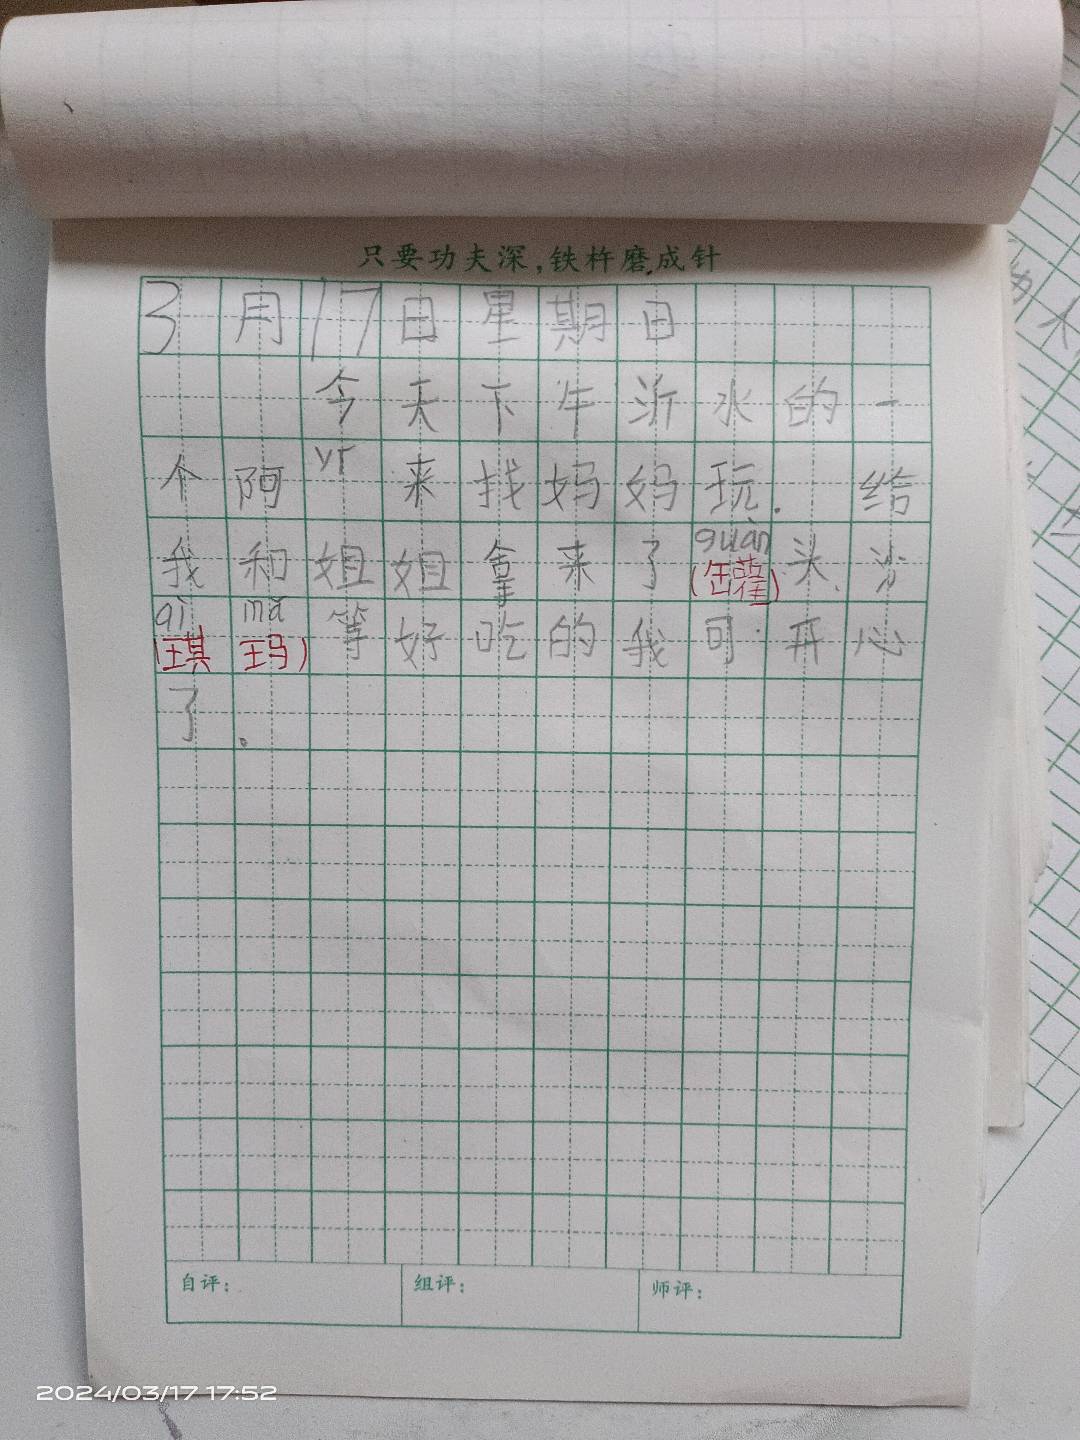 只要功夫深,铁杵磨成针
3月17日星期日
今天下午沂水的一
个阿yí来找妈妈玩.给
我和姐姐拿来了guàn(罐)头、沙
qí mǎ(琪玛)等好吃的我可开心
了。
自评: 组评: 师评:
2024/03/17 17:52